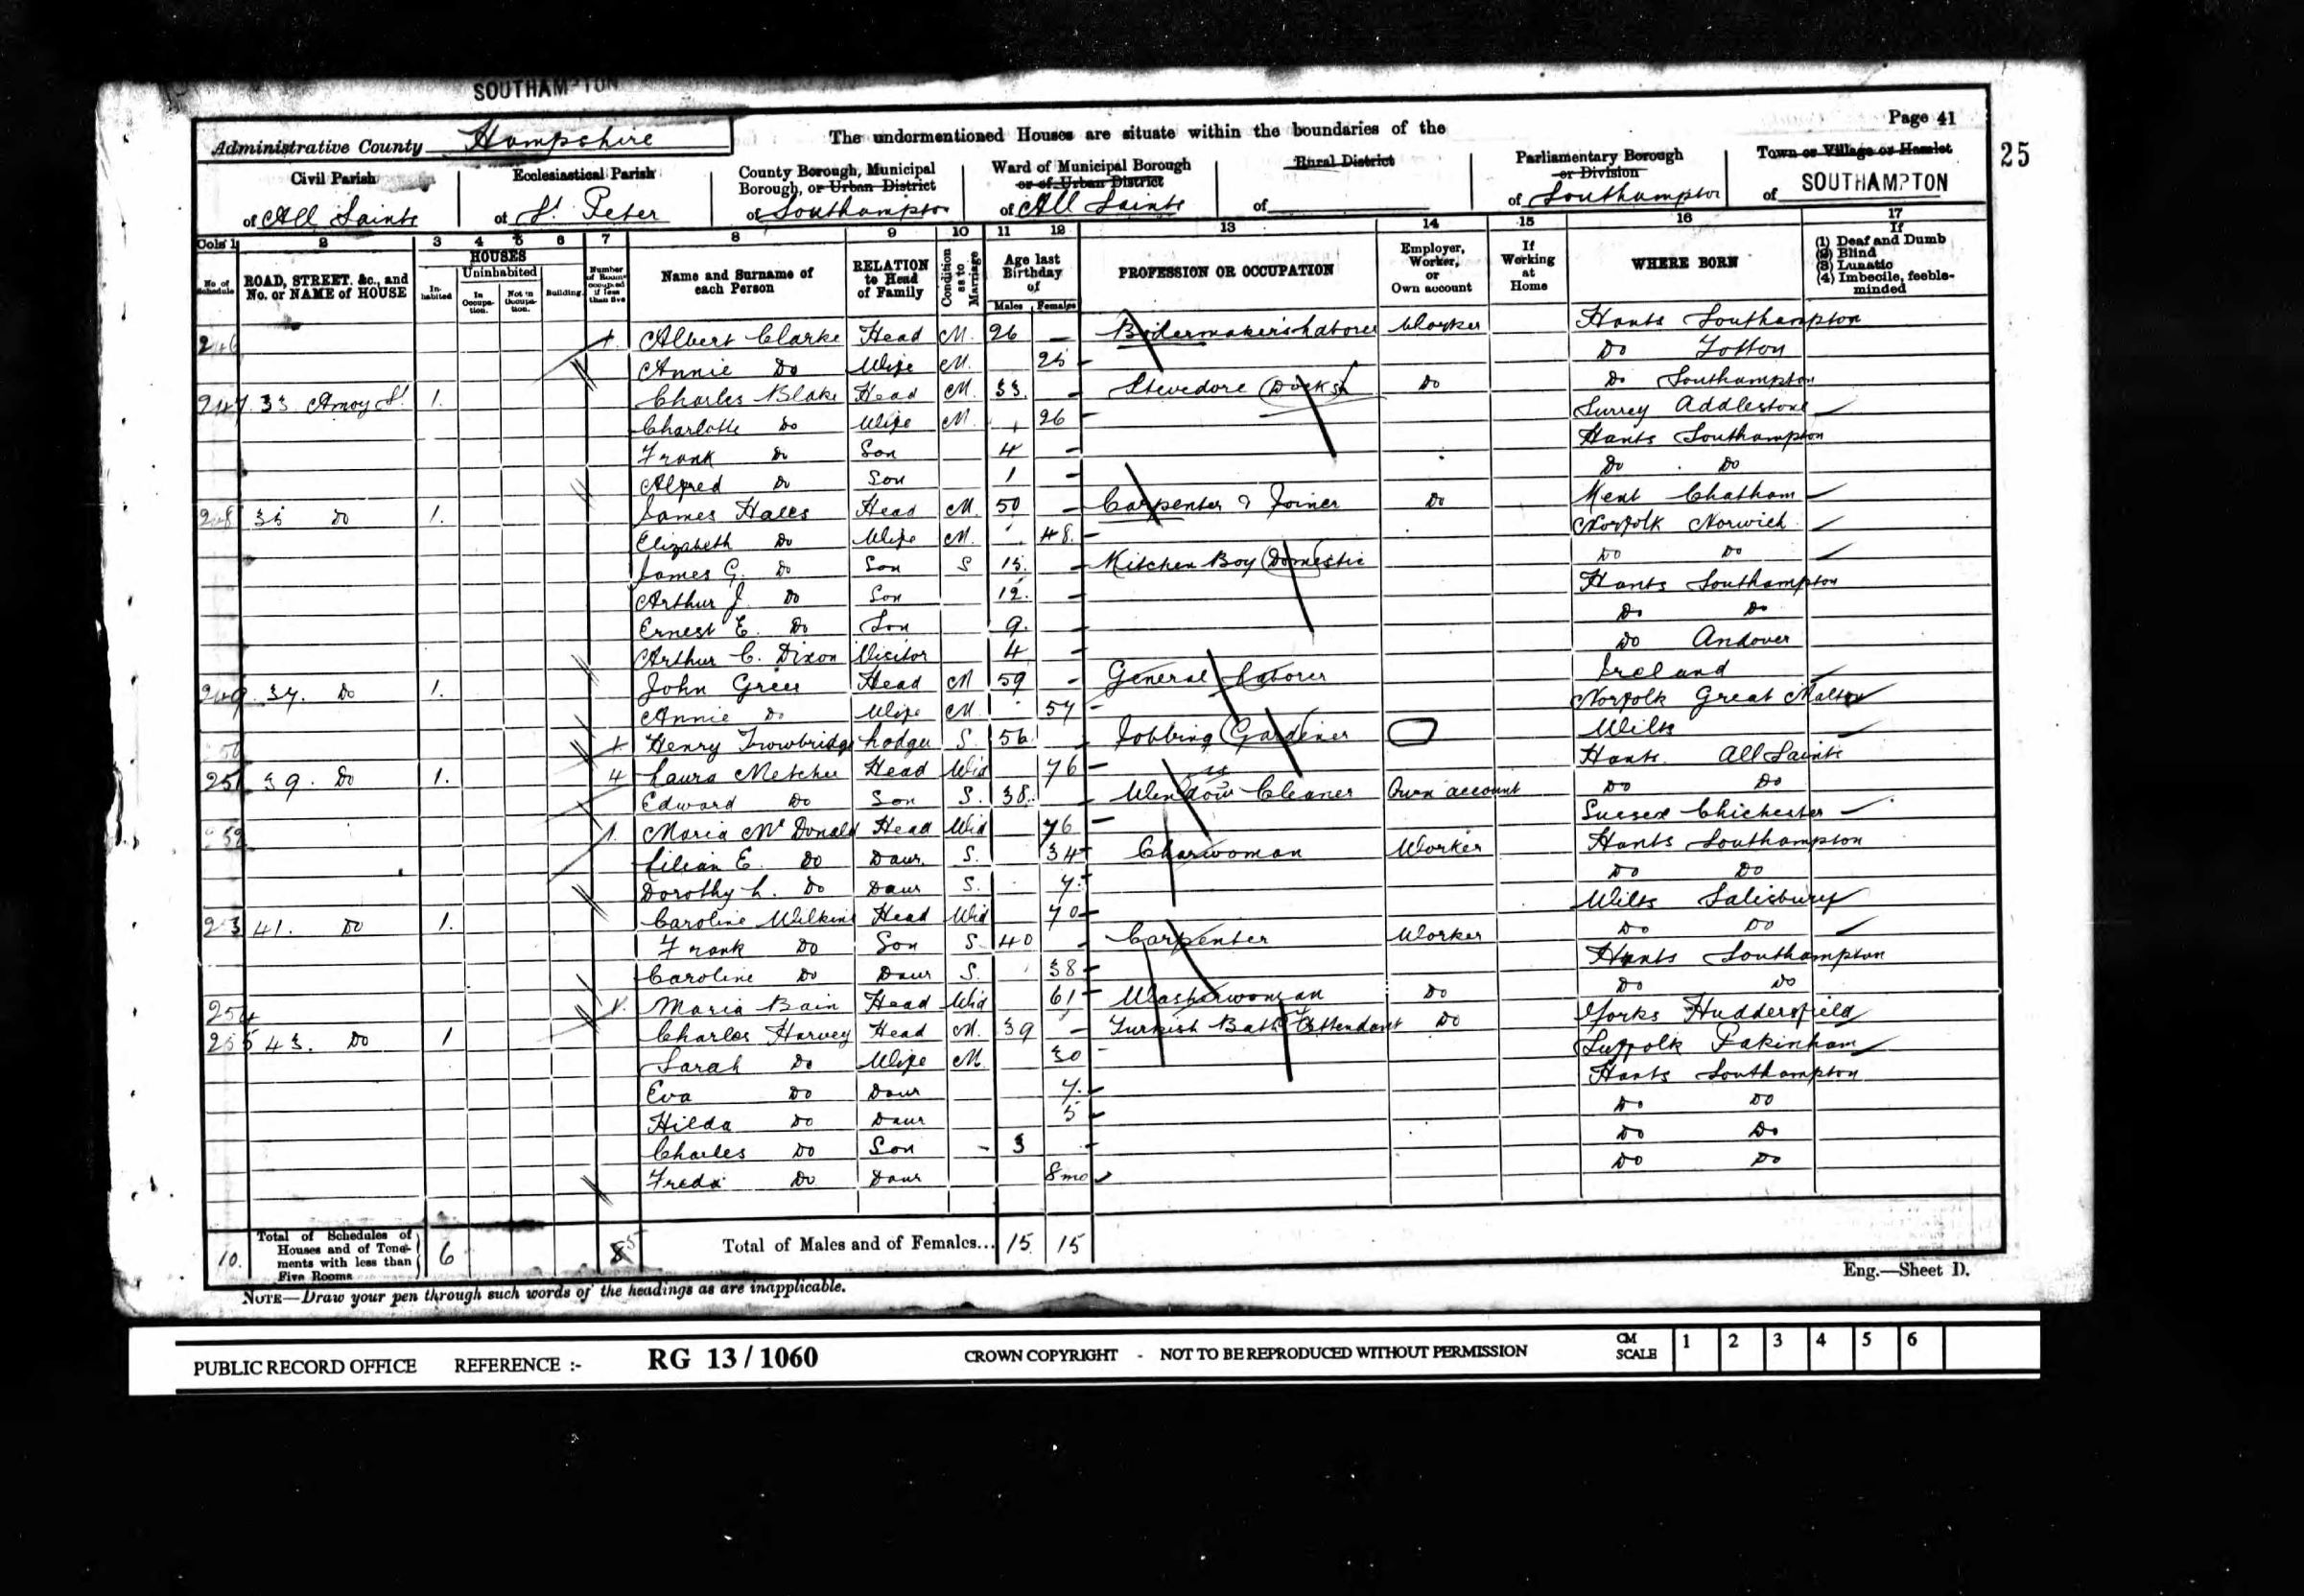 SOUTHAMPTON
Page 41
25
Administrative County Hampshire The undermentioned Houses are situate within the boundaries of the
Civil Parish of All Saints
Ecclesiastical Parish of St. Peter
County Borough, Municipal Borough, or Urban District of Southampton
Ward of Municipal Borough or of Urban District of All Saints
Rural District of
Parliamentary Borough or Division of Southampton
Town or Village or Hamlet of SOUTHAMPTON
Cols 1 2 3 4 5 6 7 8 9 10 11 12 13 14 15 16 17
No. of Schedule
ROAD, STREET, &c., and No. or NAME of HOUSE
HOUSES
Inhabited
Uninhabited
In Occupation.
Not in Occupation.
Building
Number of Rooms occupied if less than five
Name and Surname of each Person
RELATION to Head of Family
Condition as to Marriage
Age last Birthday of
Males Females
PROFESSION OR OCCUPATION
Employer, Worker, or Own account
If Working at Home
WHERE BORN
If
(1) Deaf and Dumb
(2) Blind
(3) Lunatic
(4) Imbecile, feeble-minded
246 Albert Clarke Head M. 26 — Boilermakers Laborer Worker Hants Southampton
Annie Do Wife M. 25 Do Totton
247 33. Amoy St. 1. Charles Blake Head M. 33. Stevedore (Docks) Do Do Southampton
Charlotte Do Wife M. 26 Surrey Addlestone
Frank Do Son 4 Hants Southampton
Alfred Do Son 1 Do Do
248 35 Do 1. James Hales Head M. 50 Carpenter & Joiner Do Kent Chatham
Elizabeth Do Wife M. 48. Norfolk Norwich
James G. Do Son S 15. Kitchen Boy (Domestic Do Do
Arthur J. Do Son 12. Hants Southampton
Ernest E. Do Son 9. Do Do
Arthur C. Dixon Visitor 4 Do Andover
249 37. Do 1. John Greer Head M 59 General Laborer Ireland
Annie Do Wife M. 57 Norfolk Great
50 Henry Trowbridge Lodger S. 56 Jobbing Gardener Wilts
251 39. Do 1. 4 Laura Metcher Head Wid 76 Hants. All Saints
Edward Do Son S. 38. Window Cleaner Own account Do Do
52 1. Maria McDonald Head Wid 76 Sussex Chichester
Lilian E. Do Daur. S. 34 Charwoman Worker Hants Southampton
Dorothy L. Do Daur S. 7. Do Do
253 41. Do 1. Caroline Wilkins Head Wid 70 Wilts Salisbury
Frank Do Son S. 40 Carpenter Worker Do Do
Caroline Do Daur S. 38 Hants Southampton
254 1. Maria Bain Head Wid 61 Washerwoman Do Do Do
255 43. Do 1 Charles Harvey Head M. 39 Turkish Bath Attendant Do Yorks Huddersfield
Sarah Do Wife M. 30 Suffolk Pakinham
Eva Do Daur 7. Hants Southampton
Hilda Do Daur 5 Do Do
Charles Do Son 3 Do Do
Freda Do Daur 8mo Do Do
10. Total of Schedules of Houses and of Tenements with less than Five Rooms 6 5 Total of Males and of Females... 15 15
NOTE—Draw your pen through such words of the headings as are inapplicable.
Eng.—Sheet D.
PUBLIC RECORD OFFICE REFERENCE :- RG 13/1060 CROWN COPYRIGHT - NOT TO BE REPRODUCED WITHOUT PERMISSION CM SCALE 1 2 3 4 5 6